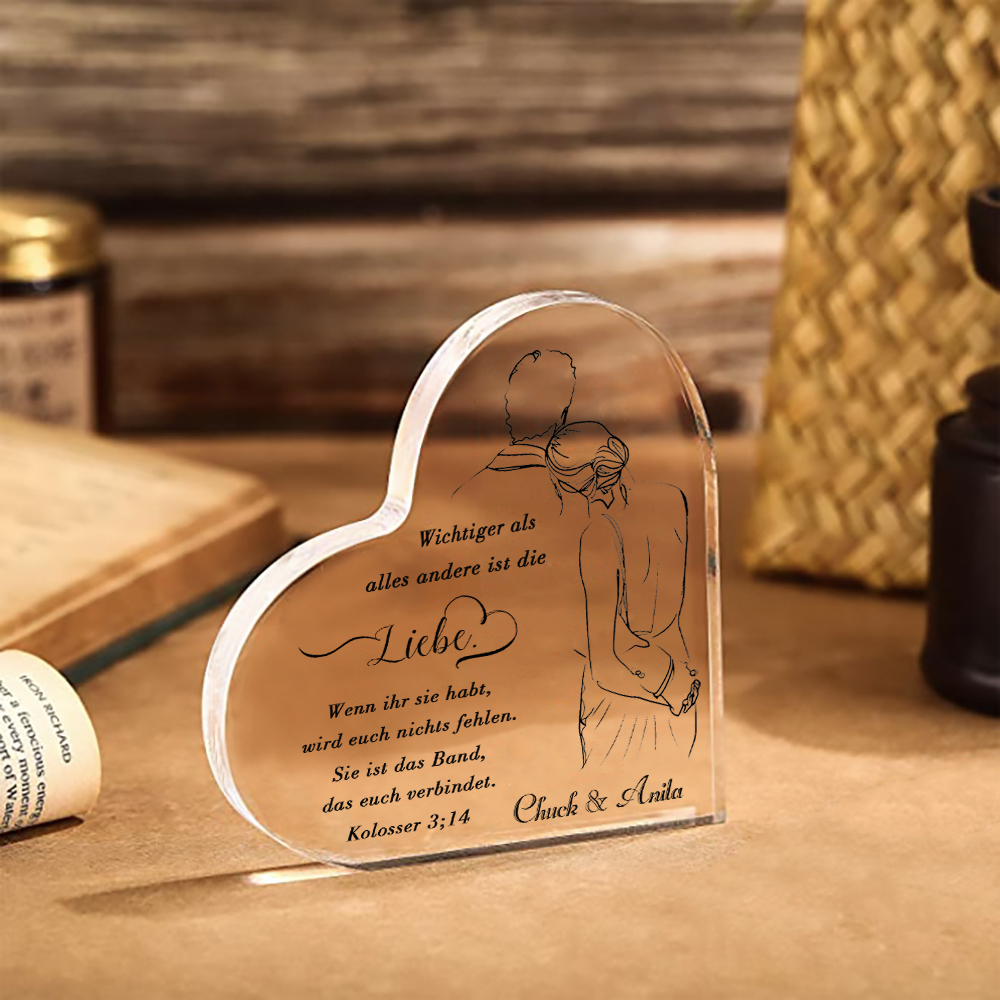 Wichtiger als
alles andere ist die
Liebe.
Wenn ihr sie habt,
wird euch nichts fehlen.
Sie ist das Band,
das euch verbindet.
Kolosser 3;14
Chuck & Anila
IRON RICHARD
a ferocious energ
every moment
ort of Wate